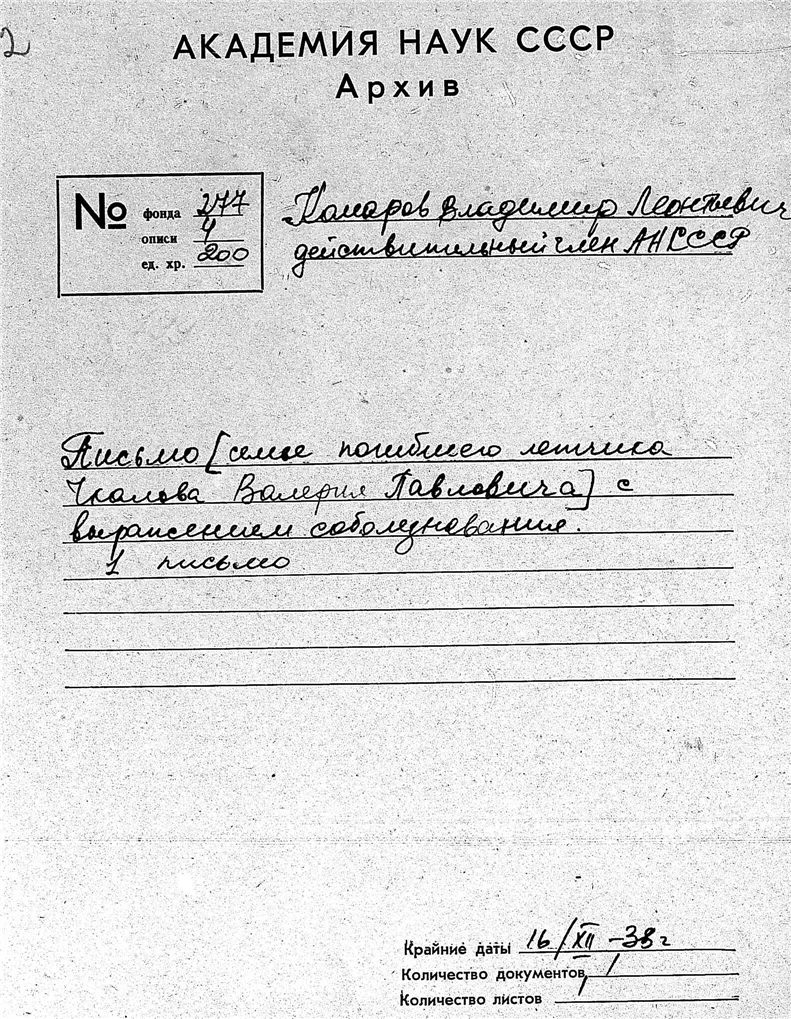 2
АКАДЕМИЯ НАУК СССР
Архив
№ фонда 277
описи 4
ед. хр. 200
Комаров Владимир Леонтьевич
действительный член АН СССР
Письмо [семье погибшего летчика
Чкалова Валерия Павловича] с
выражением соболезнования.
1 письмо
Крайние даты 16/XII-38г
Количество документов 1
Количество листов 1